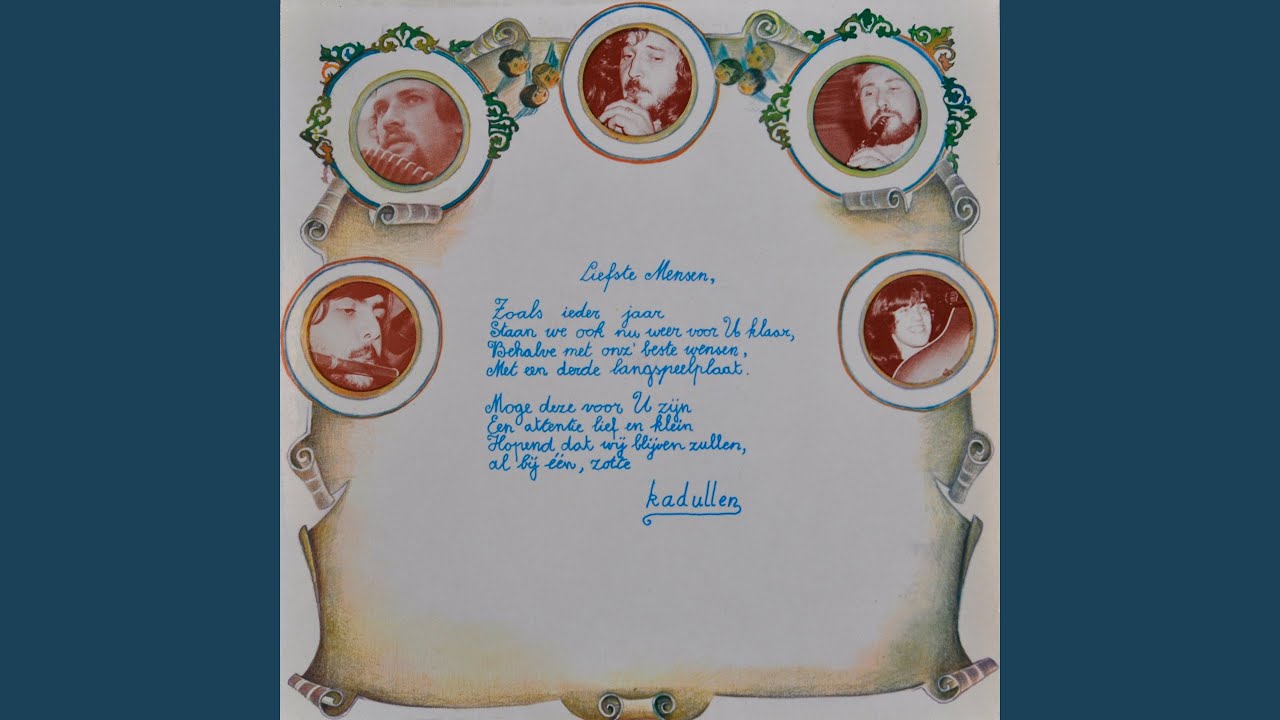 Liefste Mensen,
Zoals ieder jaar
Staan we ook nu weer voor U klaar,
Behalve met onz' beste wensen,
Met een derde langspeelplaat.
Moge deze voor U zijn
Een attentie lief en klein
Hopend dat wij blijven zullen,
al bij één, zotte
kadullen